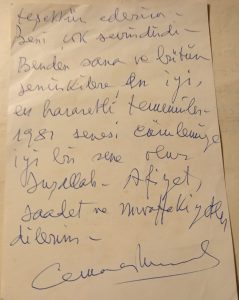 teşekkür ederim
Beni çok sevindirdi-
Benden sana ve bütün
sevdiklerine, en iyi,
en hararetli temenniler-
1981 senesi cümlemize
iyi bir sene olur
İnşallah- Afiyet,
saadet ve muvaffakiyetler
dilerim-